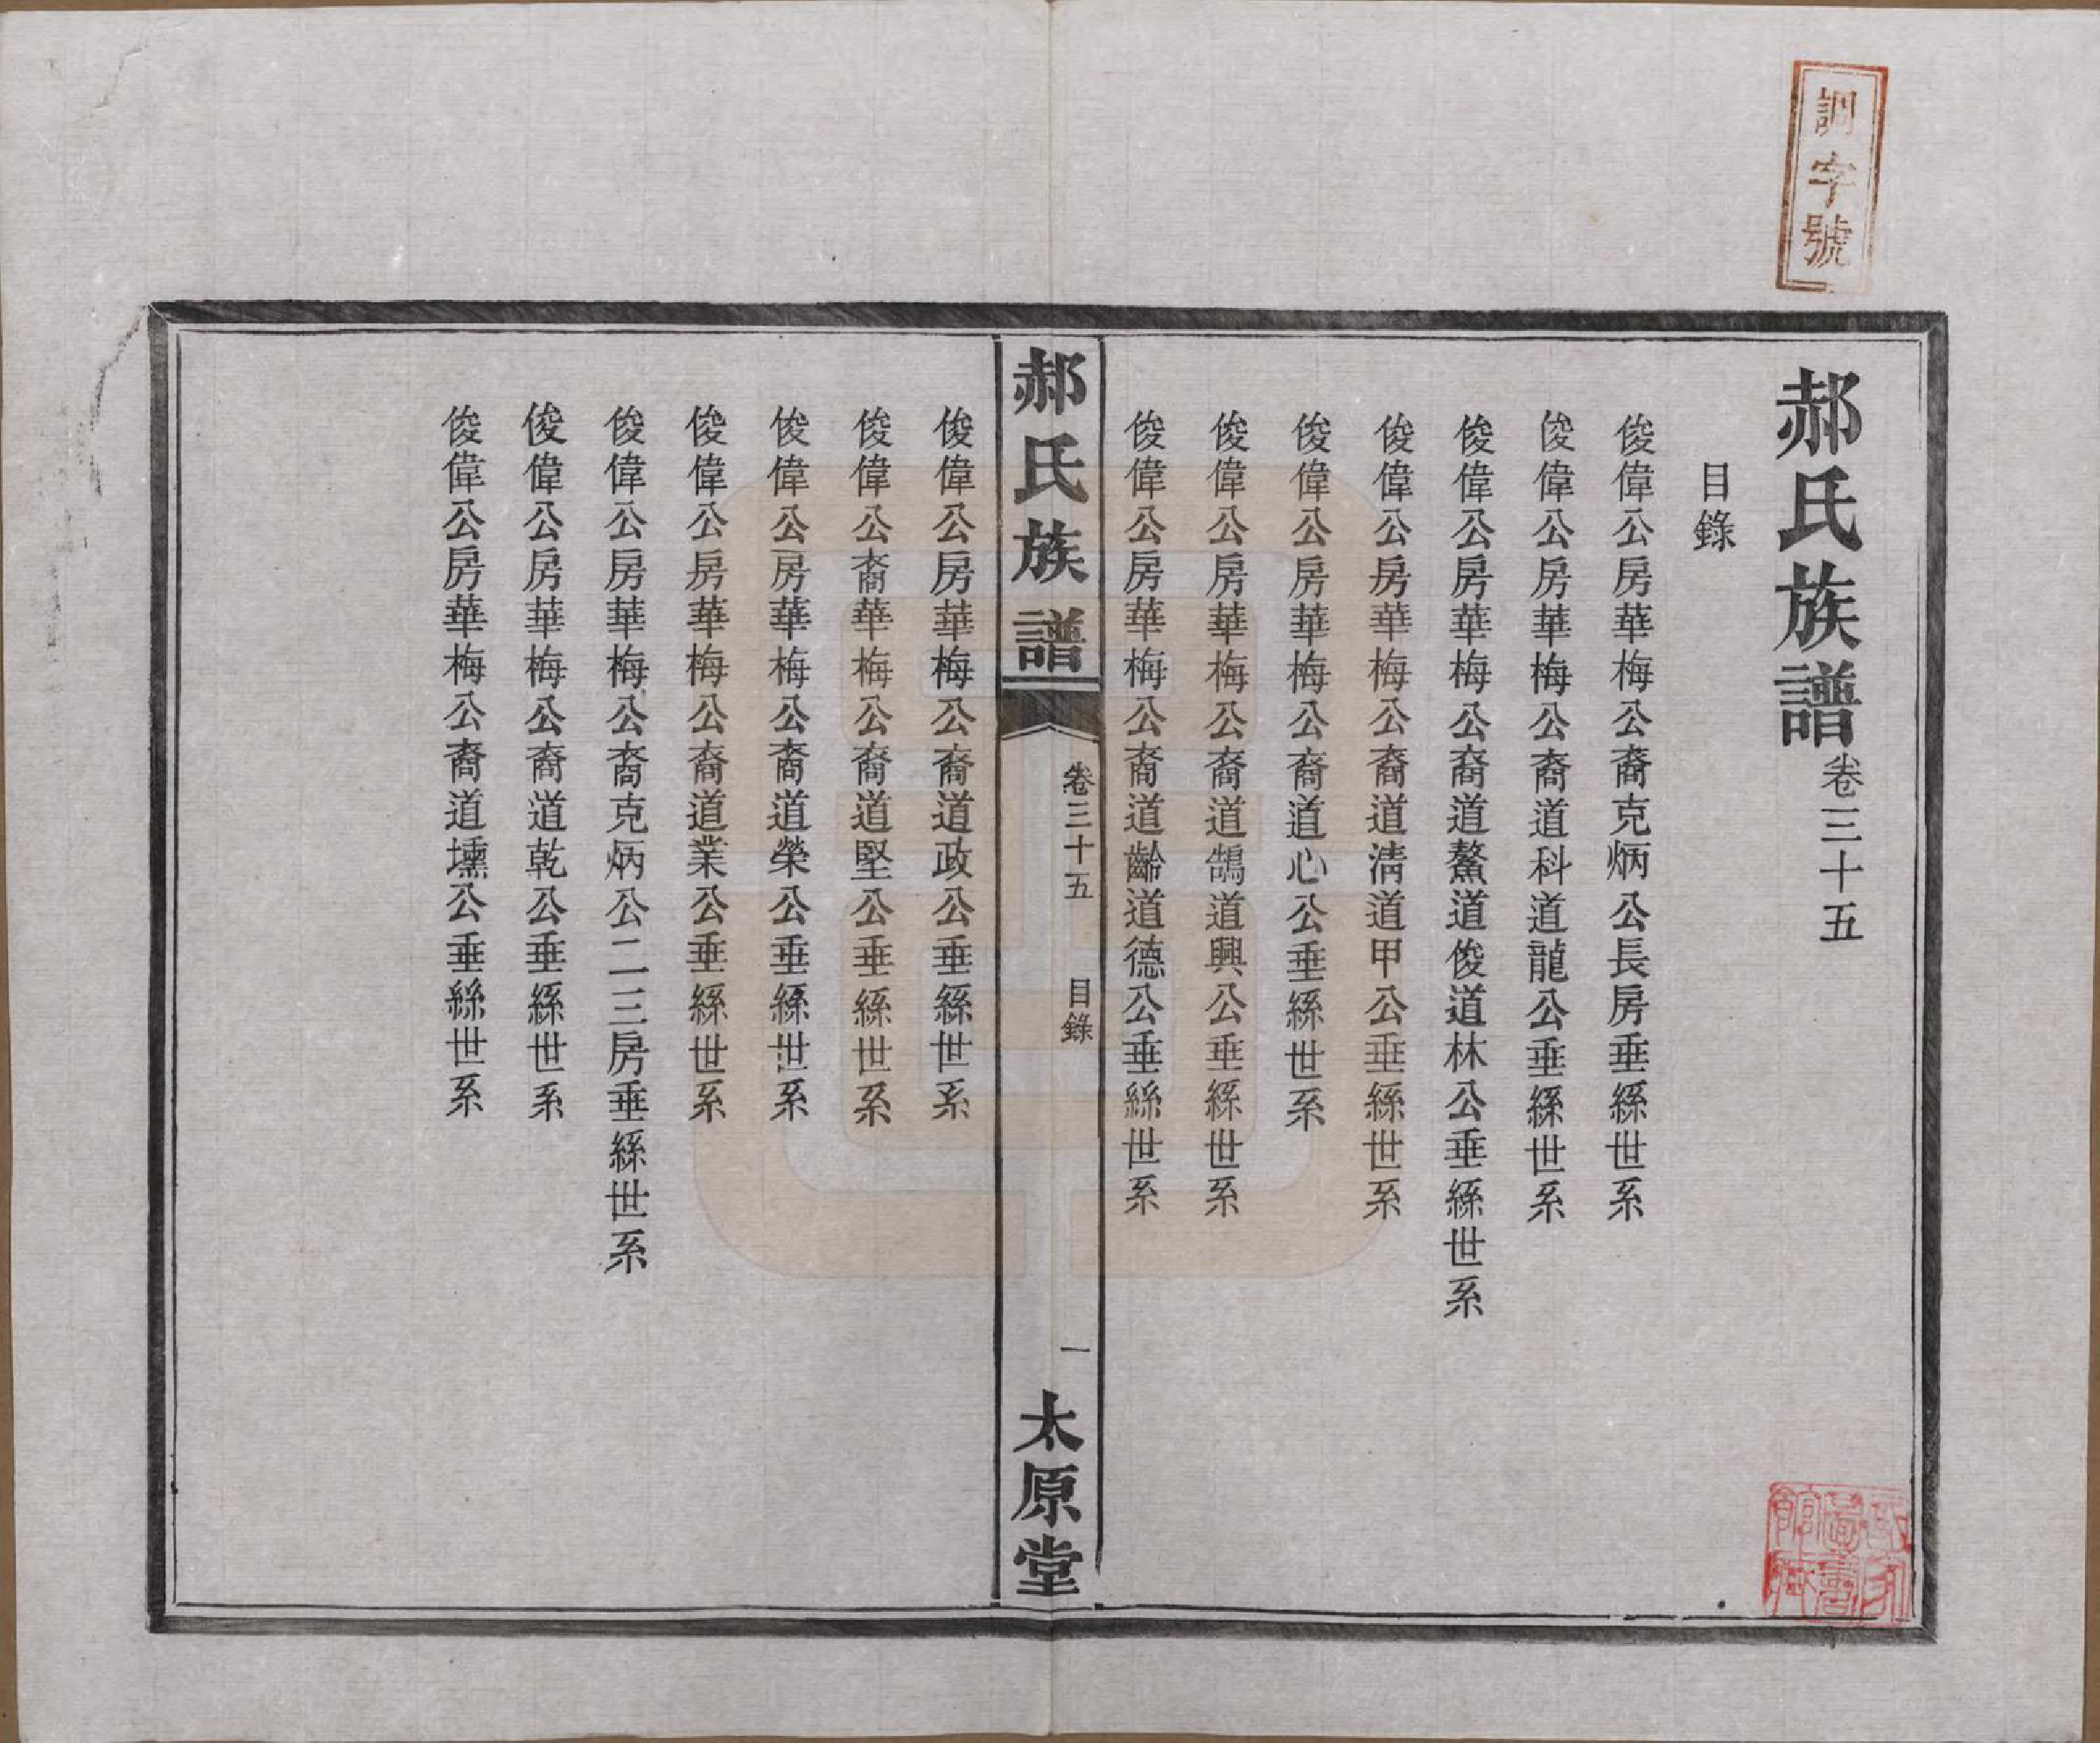 調字號
郝氏族譜卷三十五
目錄
俊偉公房華梅公裔克炳公長房垂絲世系
俊偉公房華梅公裔道科道龍公垂絲世系
俊偉公房華梅公裔道鰲道俊道林公垂絲世系
俊偉公房華梅公裔道清道甲公垂絲世系
俊偉公房華梅公裔道心公垂絲世系
俊偉公房華梅公裔道鵠道興公垂絲世系
俊偉公房華梅公裔道齡道德公垂絲世系
郝氏族譜
卷三十五 目錄
一
太原堂
俊偉公房華梅公裔道政公垂絲世系
俊偉公裔華梅公裔道堅公垂絲世系
俊偉公房華梅公裔道榮公垂絲世系
俊偉公房華梅公裔道業公垂絲世系
俊偉公房華梅公裔克炳公二三房垂絲世系
俊偉公房華梅公裔道乾公垂絲世系
俊偉公房華梅公裔道壎公垂絲世系